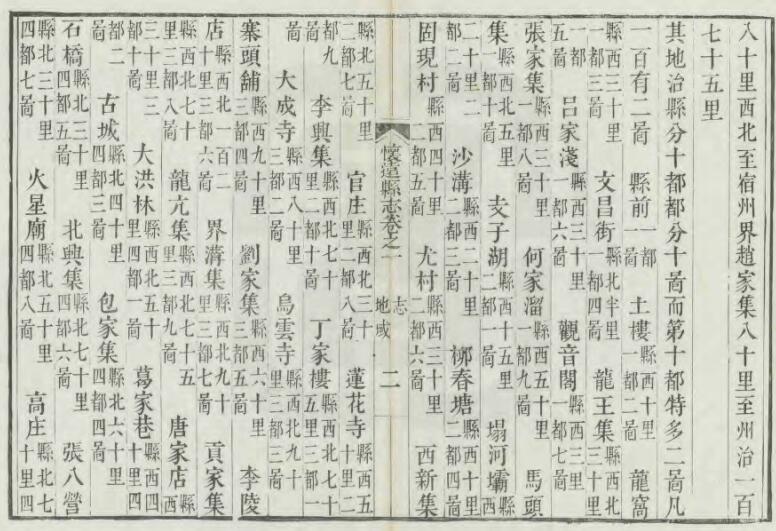 八十里西北至宿州界趙家集八十里至州治一百
七十五里
其地治縣分十都都分十啚而第十都特多二啚凡
一百有二啚　縣前一都一啚　土樓縣西十里一都二啚　龍窩
縣西三十里一都三啚　文昌街縣北半里一都四啚　龍王集縣西北三十里
一都五啚　呂家淺縣西三十里一都六啚　觀音閣縣西三里一都七啚
張家集縣西三十里一都八啚　何家溜縣西五十里一都九啚　馬頭
集縣西北五里一都十啚　支子湖縣西十五里二都一啚　塌河壩縣西
二十里二都二啚　沙溝縣西二十里二都三啚　柳春塘縣西十里二都四啚
固現村縣西四十里二都五啚　尤村縣西三十里二都六啚　西新集
懷遠縣志卷之一　地域志　二
縣北五十里二都七啚　官庄縣北三十里二都八啚　蓮花寺縣西五十里二
都九啚　李興集縣西北七十里二都十啚　丁家樓縣西北七十五里三都一
啚　大成寺縣西八十里三都二啚　烏雲寺縣西北九十里三都三啚
寨頭舖縣西九十里三都四啚　劉家集縣西六十里三都五啚　李陵
店縣西北一百二十里三都六啚　界溝集縣西北九十里三都七啚　貢家集
縣西北七十里三都八啚　龍亢集縣西北七十五里三都九啚　唐家店縣西
三十里三都十啚　大洪林縣西北五十里四都一啚　葛家巷縣西四十里四
都二啚　古城縣北四十里四都三啚　包家集縣北六十里四都四啚
石橋縣北三十里四都五啚　北興集縣北七十里四都六啚　張八營
縣北三十里四都七啚　火星廟縣北五十里四都八啚　高庄縣北七十里四